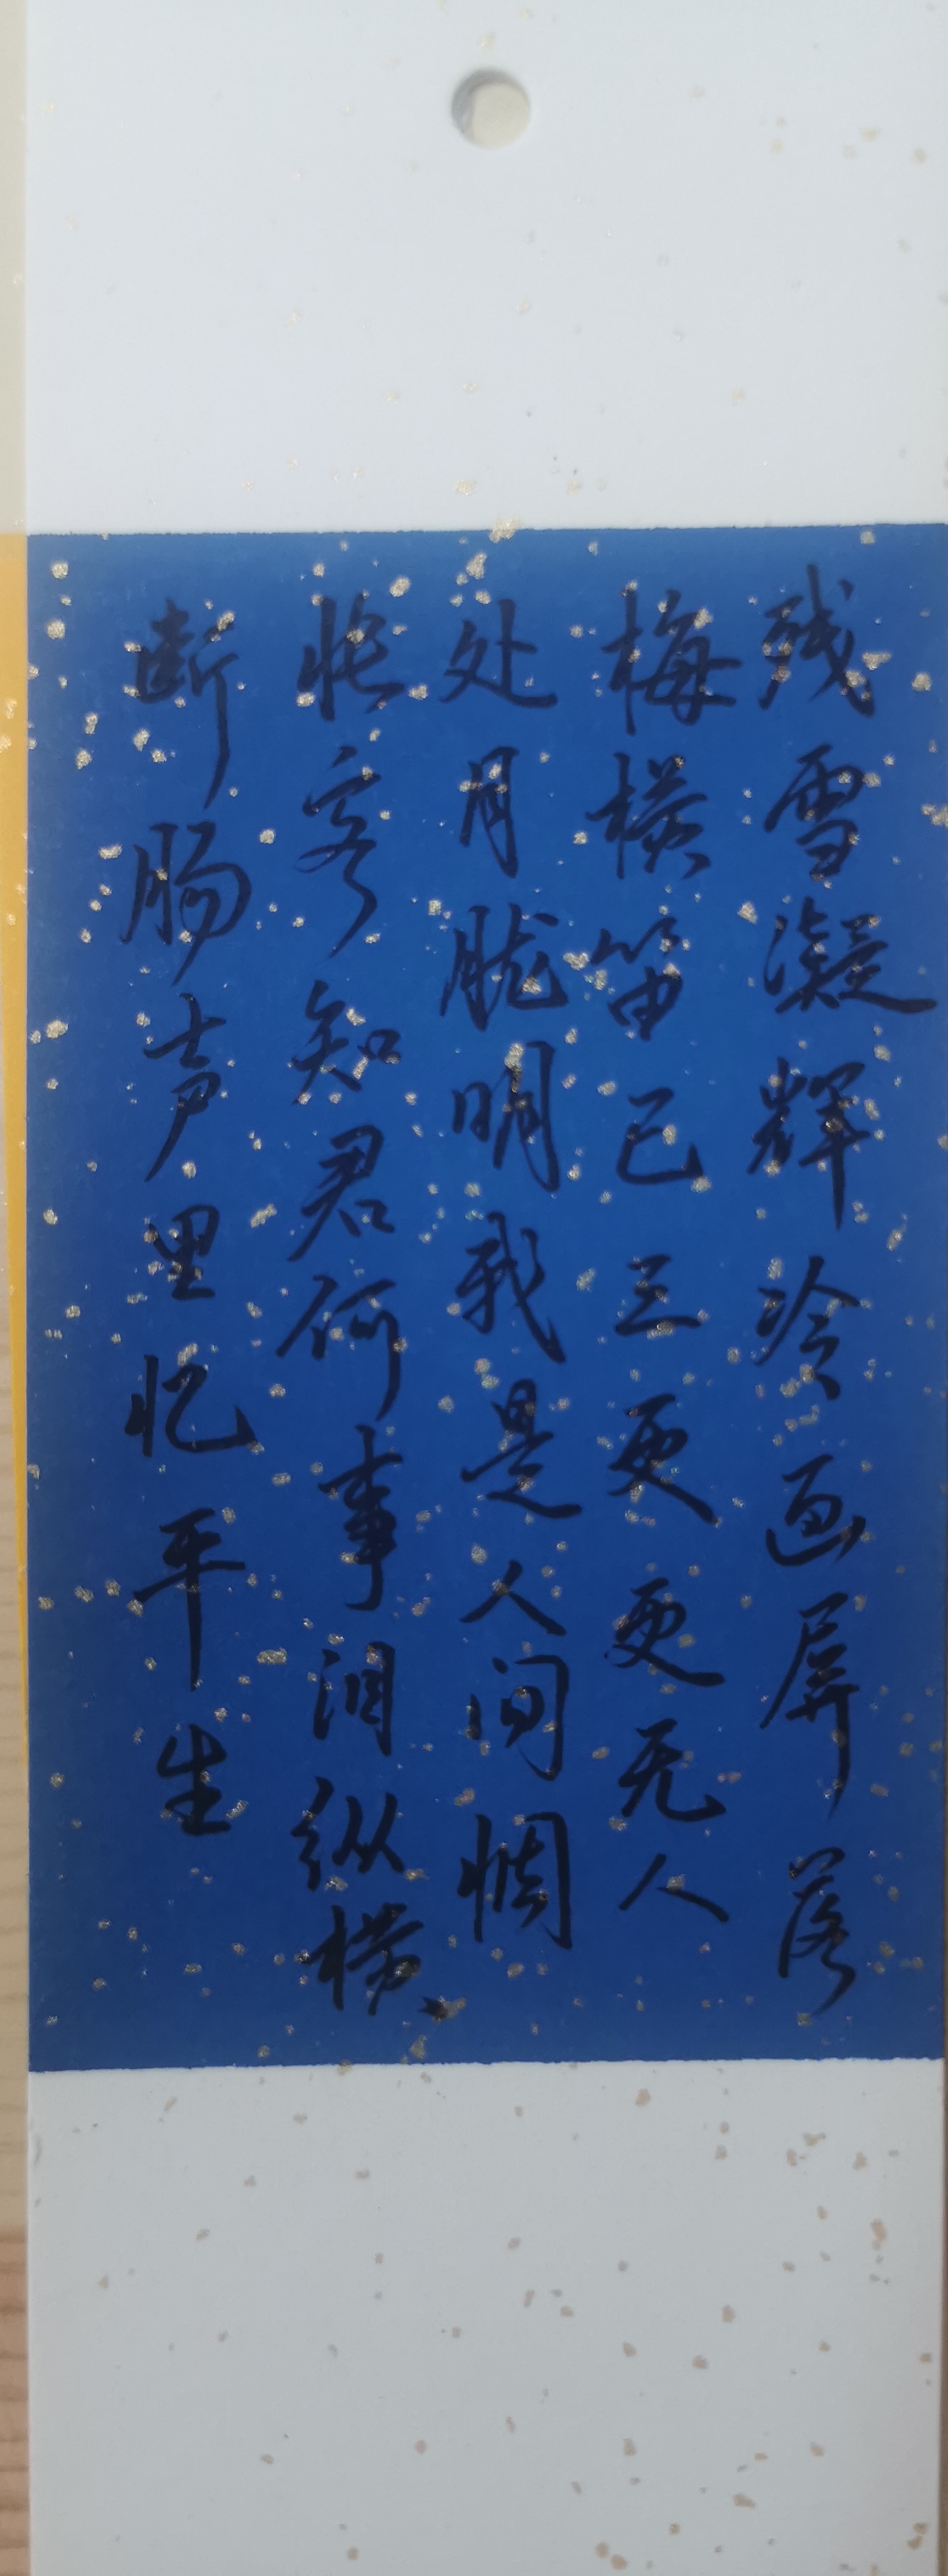 残雪凝辉冷画屏落
梅横笛已三更更无人
处月胧明我是人间惆
怅客知君何事泪纵横
断肠声里忆平生